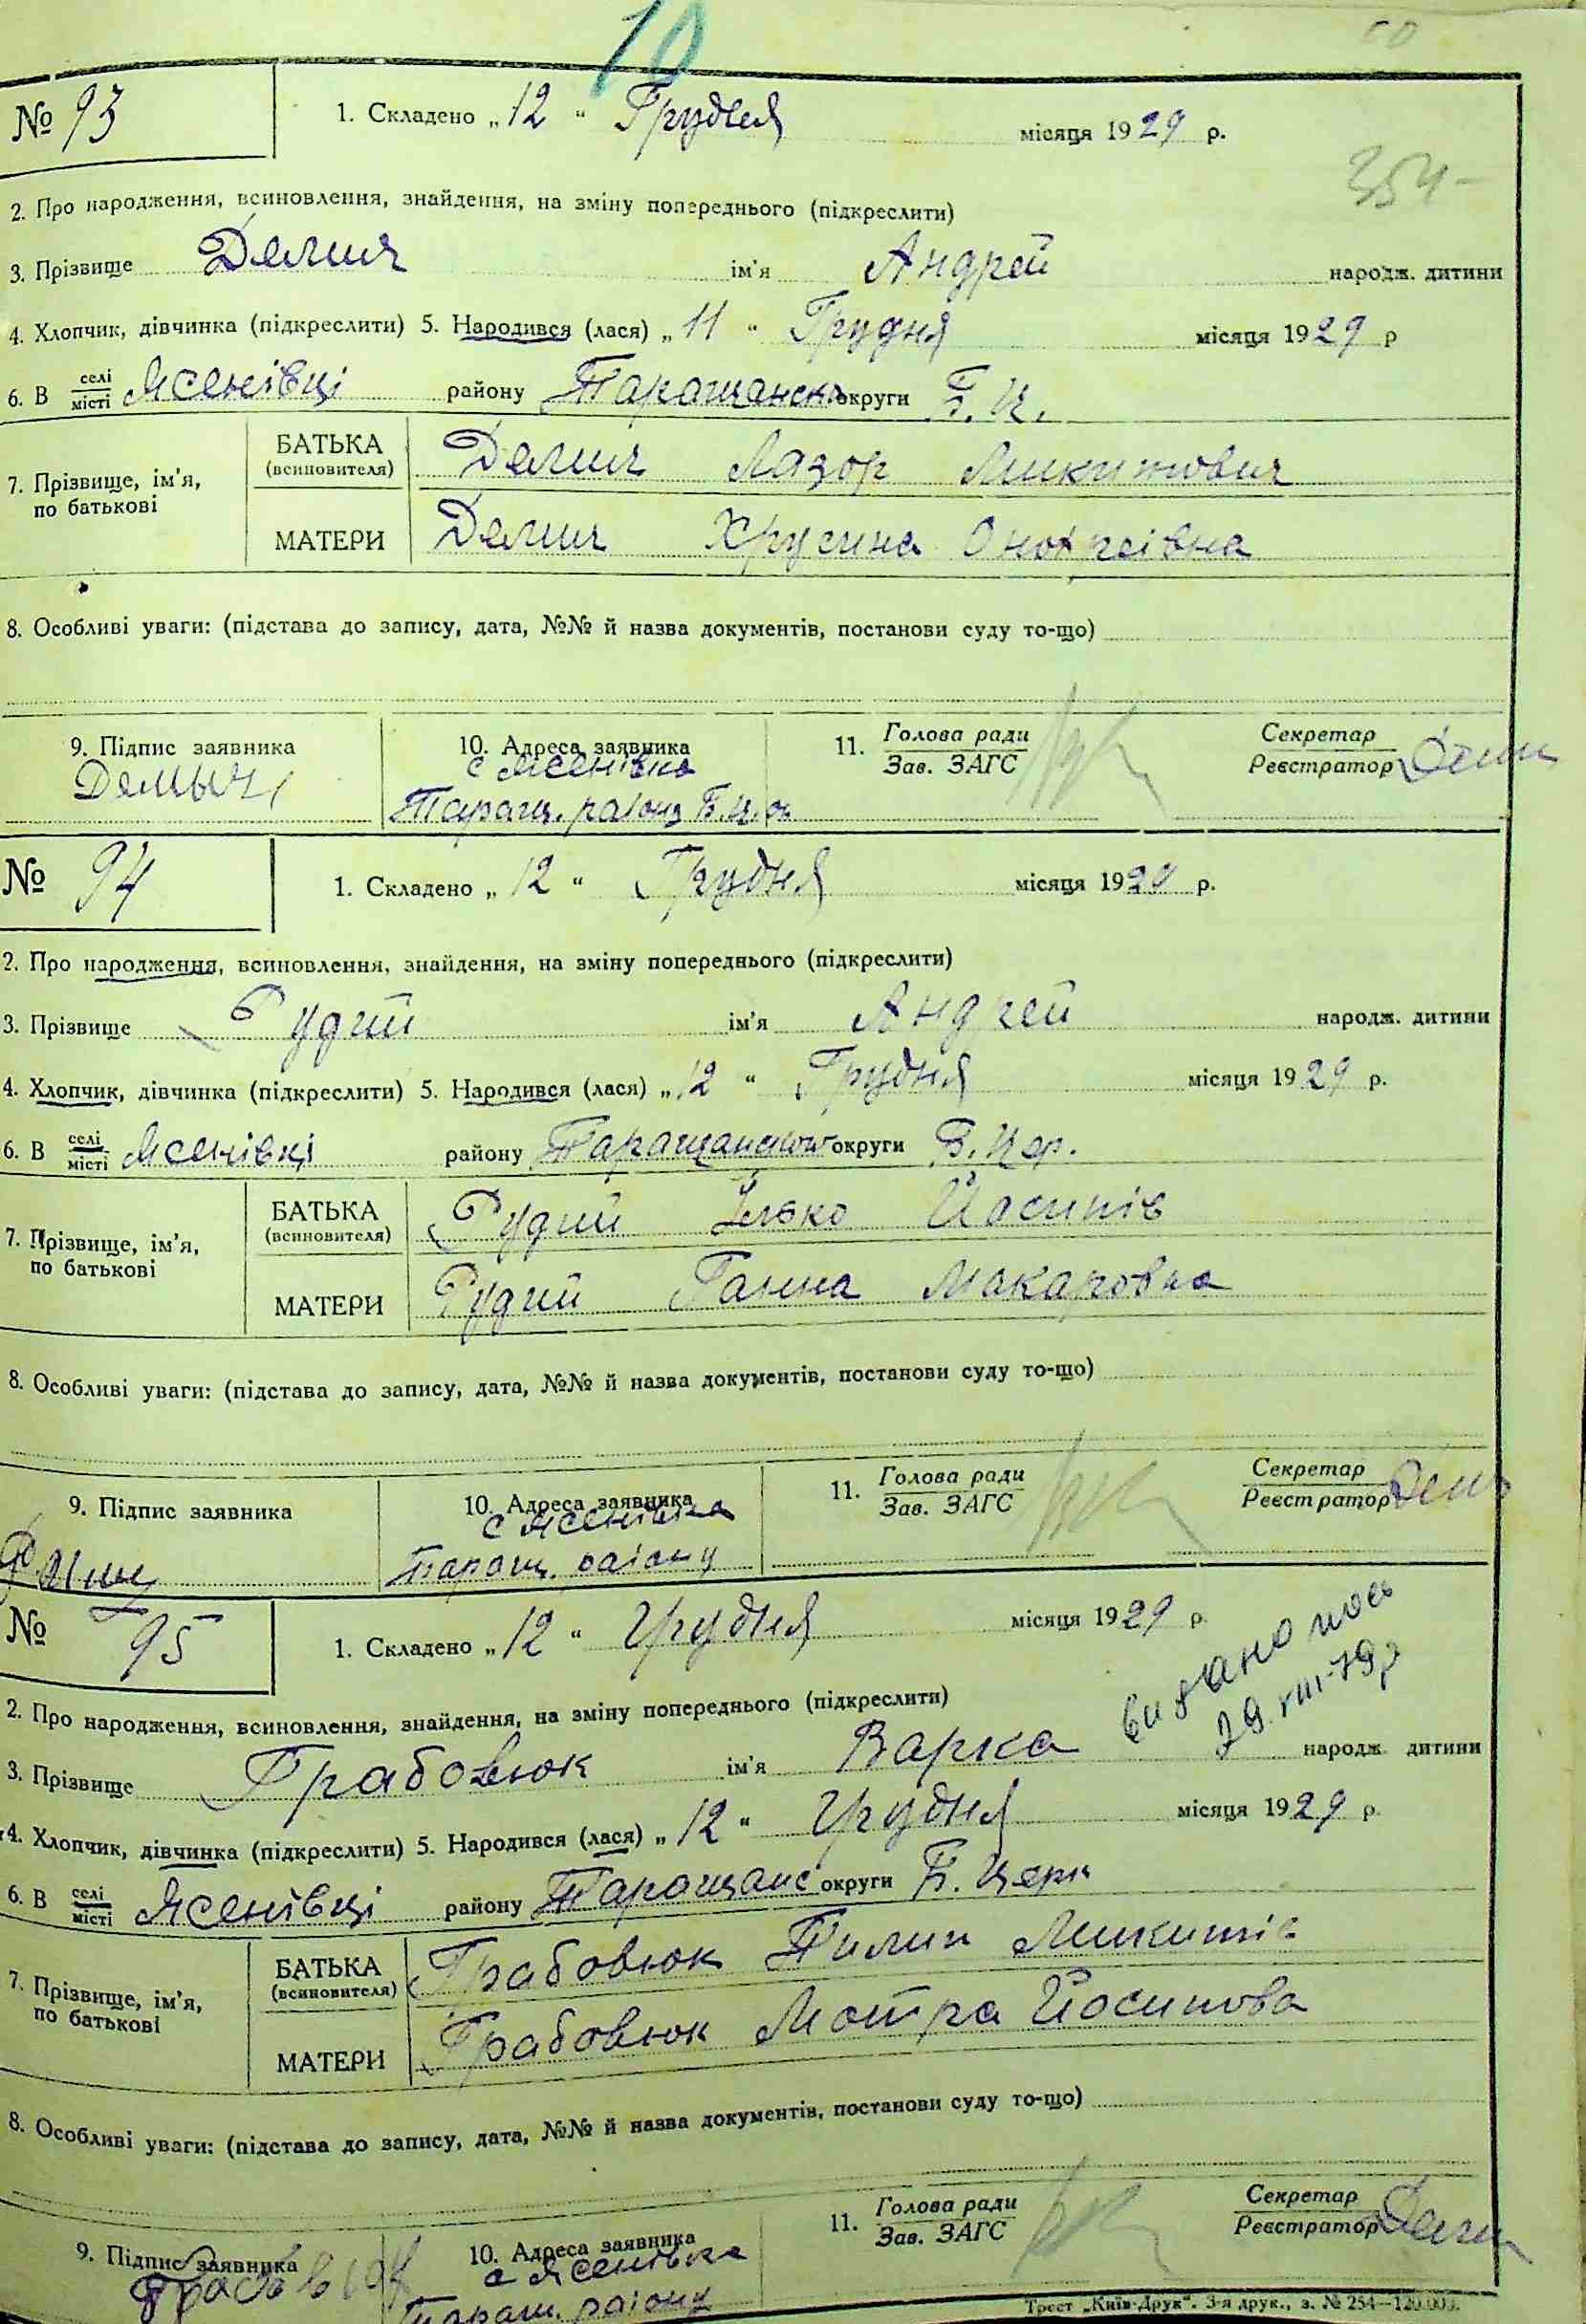 10
50
№ 93
1. Складено „12“ Грудня місяця 1929 р.
354-
2. Про народження, всиновлення, знайдення, на зміну попереднього (підкреслити)
3. Прізвище Демич ім'я Андрей народж. дитини
4. Хлопчик, дівчинка (підкреслити) 5. Народився (лася) „11“ Грудня місяця 1929 р
6. В селі/місті Ясенівці району Таращанськ округи Б. Ц.
7. Прізвище, ім'я, по батькові
БАТЬКА (всиновителя) Демич Лазор Микитович
МАТЕРИ Демич Хрусина Онопреівна
8. Особливі уваги: (підстава до запису, дата, №№ й назва документів, постанови суду то-що)
9. Підпис заявника
Демыч
10. Адреса заявника
с Ясенівка
Таращ. району Б.Ц. ок
11. Голова ради
Зав. ЗАГС
Секретар
Реєстратор
№ 94
1. Складено „12“ Грудня місяця 1929 р.
2. Про народження, всиновлення, знайдення, на зміну попереднього (підкреслити)
3. Прізвище Рудий ім'я Андрей народж. дитини
4. Хлопчик, дівчинка (підкреслити) 5. Народився (лася) „12“ Грудня місяця 1929 р.
6. В селі/місті Ясенівці району Таращанськой округи Б. Цер.
7. Прізвище, ім'я, по батькові
БАТЬКА (всиновителя) Рудий Ілько Йосипів
МАТЕРИ Рудий Ганна Макаровна
8. Особливі уваги: (підстава до запису, дата, №№ й назва документів, постанови суду то-що)
9. Підпис заявника
10. Адреса заявника
с Ясенівка
Таращ. раіону
11. Голова ради
Зав. ЗАГС
Секретар
Реєстратор
№ 95
1. Складено „12“ Грудня місяця 1929 р.
2. Про народження, всиновлення, знайдення, на зміну попереднього (підкреслити)
3. Прізвище Грабовюк ім'я Варка народж. дитини
4. Хлопчик, дівчинка (підкреслити) 5. Народився (лася) „12“ Грудня місяця 1929 р.
6. В селі/місті Ясенівці району Таращанс округи Б. Церк
7. Прізвище, ім'я, по батькові
БАТЬКА (всиновителя) Грабовюк Пилип Микитів
МАТЕРИ Грабовюк Мотра Йосипова
8. Особливі уваги: (підстава до запису, дата, №№ й назва документів, постанови суду то-що)
9. Підпис заявника
10. Адреса заявника
с Ясенівка
Таращ. раіону
11. Голова ради
Зав. ЗАГС
Секретар
Реєстратор
Трест „Київ-Друк“. 3-я друк., з. № 254—120.000.